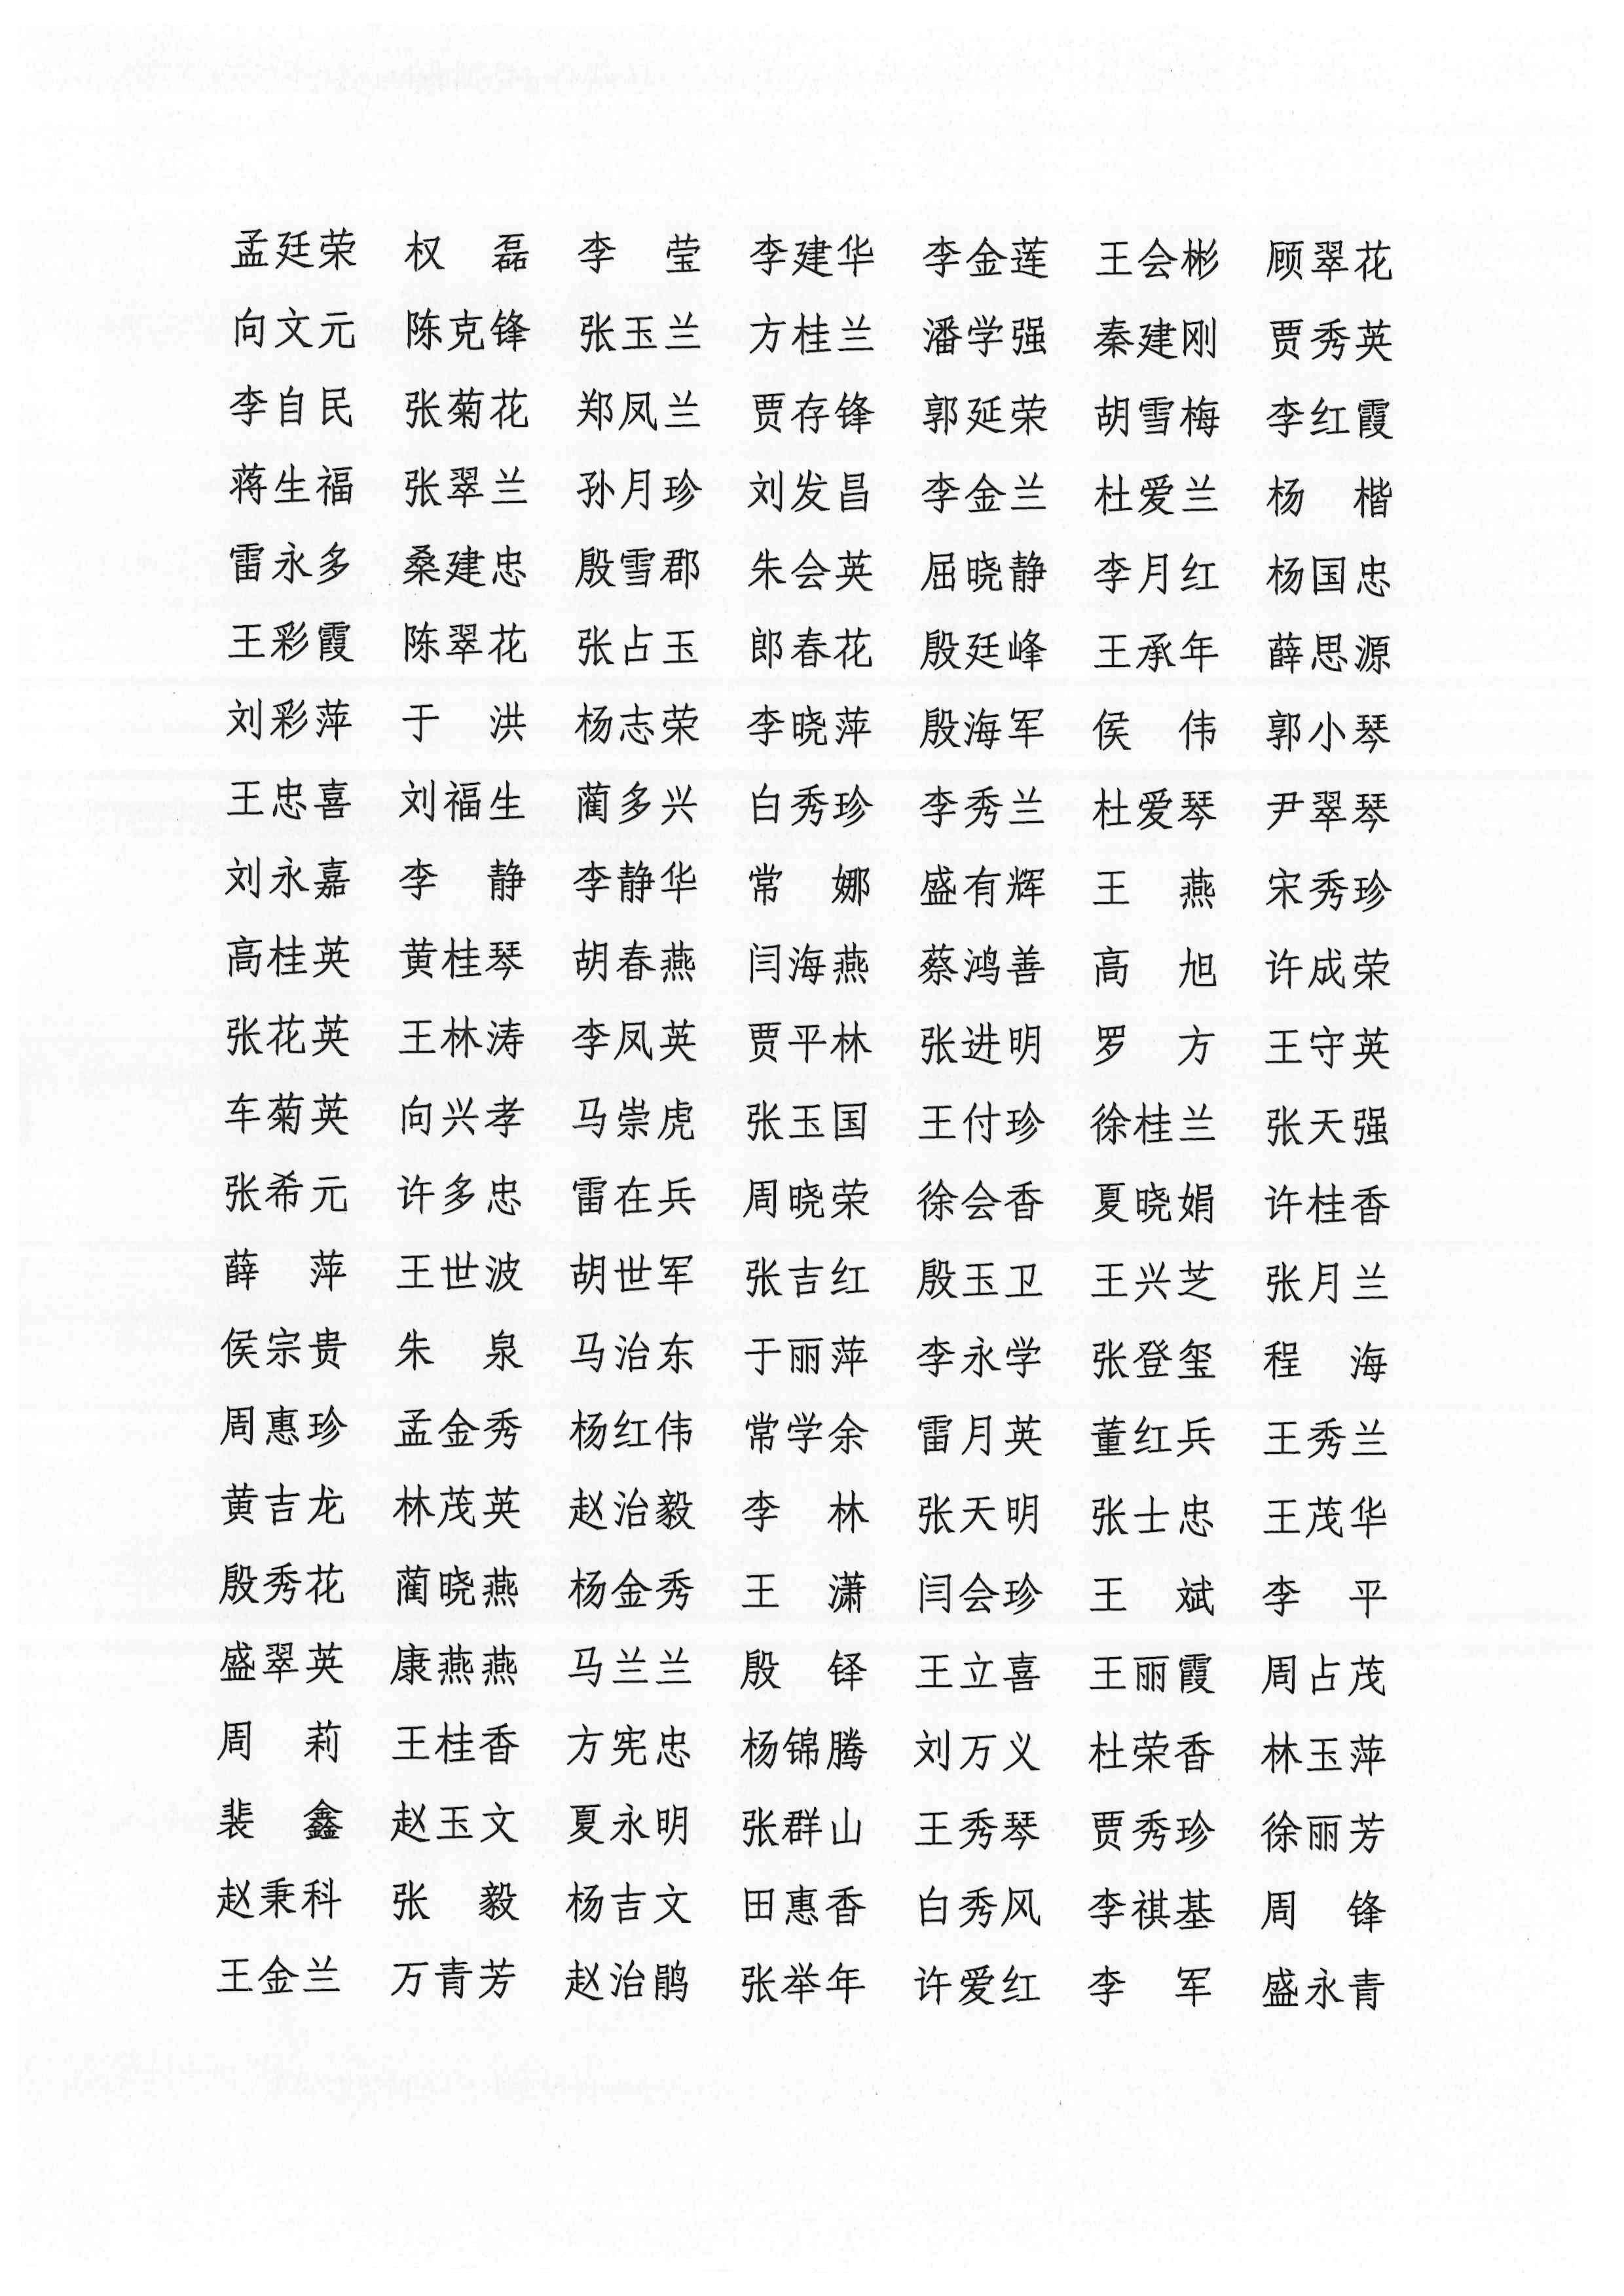 孟廷荣 权　磊 李　莹 李建华 李金莲 王会彬 顾翠花
向文元 陈克锋 张玉兰 方桂兰 潘学强 秦建刚 贾秀英
李自民 张菊花 郑凤兰 贾存锋 郭延荣 胡雪梅 李红霞
蒋生福 张翠兰 孙月珍 刘发昌 李金兰 杜爱兰 杨　楷
雷永多 桑建忠 殷雪郡 朱会英 屈晓静 李月红 杨国忠
王彩霞 陈翠花 张占玉 郎春花 殷廷峰 王承年 薛思源
刘彩萍 于　洪 杨志荣 李晓萍 殷海军 侯　伟 郭小琴
王忠喜 刘福生 蔺多兴 白秀珍 李秀兰 杜爱琴 尹翠琴
刘永嘉 李　静 李静华 常　娜 盛有辉 王　燕 宋秀珍
高桂英 黄桂琴 胡春燕 闫海燕 蔡鸿善 高　旭 许成荣
张花英 王林涛 李凤英 贾平林 张进明 罗　方 王守英
车菊英 向兴孝 马崇虎 张玉国 王付珍 徐桂兰 张天强
张希元 许多忠 雷在兵 周晓荣 徐会香 夏晓娟 许桂香
薛　萍 王世波 胡世军 张吉红 殷玉卫 王兴芝 张月兰
侯宗贵 朱　泉 马治东 于丽萍 李永学 张登玺 程　海
周惠珍 孟金秀 杨红伟 常学余 雷月英 董红兵 王秀兰
黄吉龙 林茂英 赵治毅 李　林 张天明 张士忠 王茂华
殷秀花 蔺晓燕 杨金秀 王　潇 闫会珍 王　斌 李　平
盛翠英 康燕燕 马兰兰 殷　铎 王立喜 王丽霞 周占茂
周　莉 王桂香 方宪忠 杨锦腾 刘万义 杜荣香 林玉萍
裴　鑫 赵玉文 夏永明 张群山 王秀琴 贾秀珍 徐丽芳
赵秉科 张　毅 杨吉文 田惠香 白秀风 李祺基 周　锋
王金兰 万青芳 赵治鹃 张举年 许爱红 李　军 盛永青